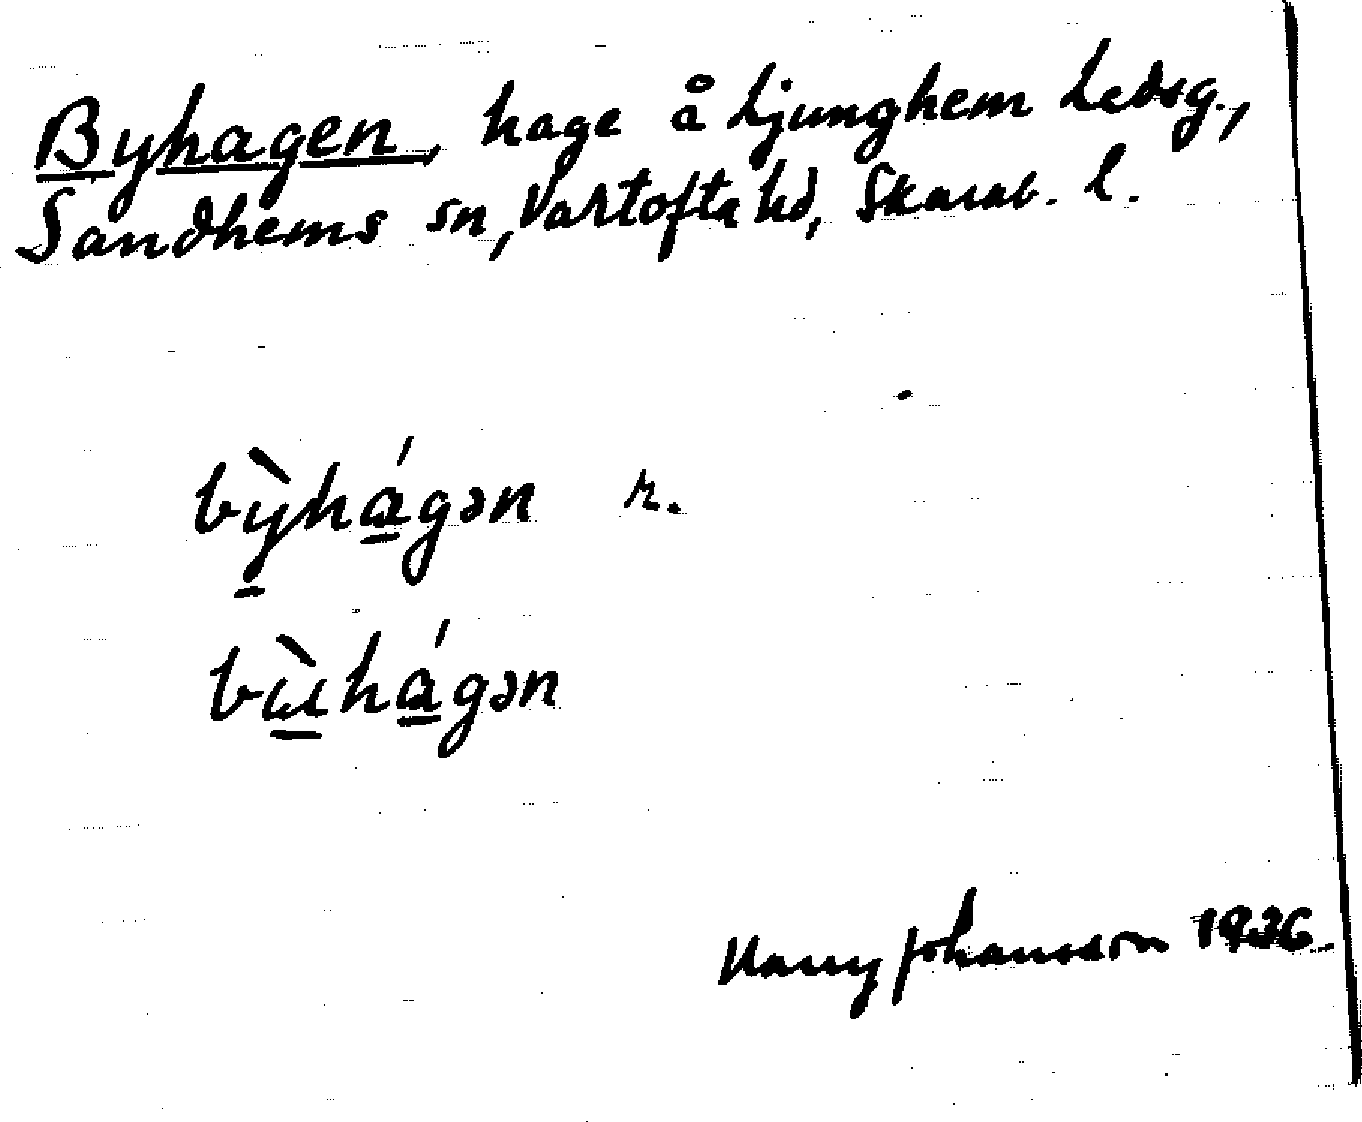 Byhagen, hage å Ljunghem Ledsg.,
Sandhems sn, Vartofta hd, Skarab. l.
bỳ̱há̱gən r.
bɯ̱̀há̱gən
Harry Johansson 1936